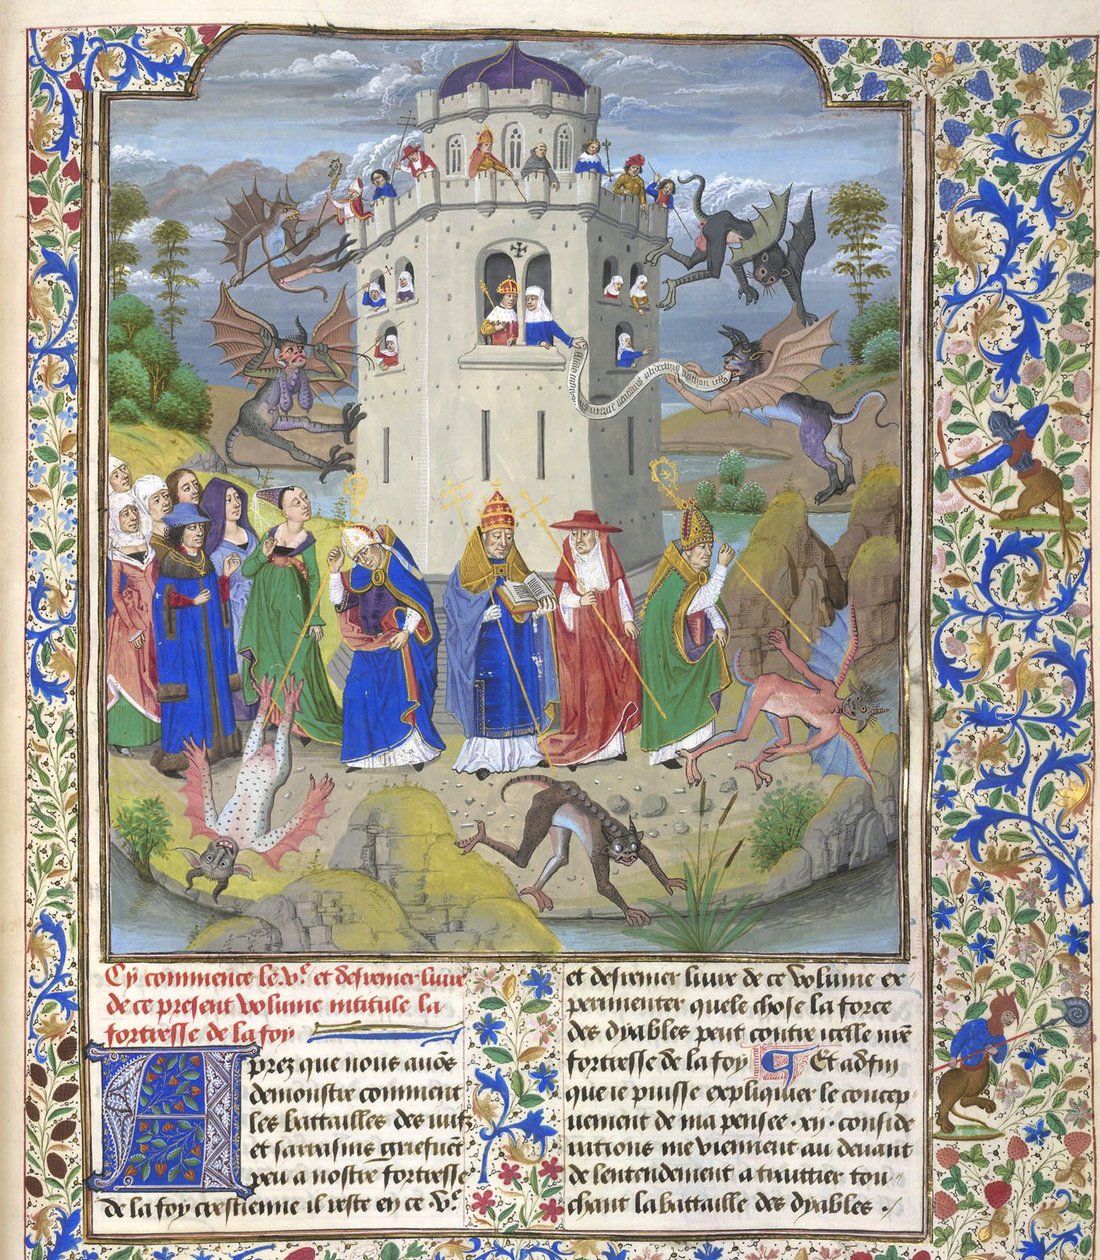 Cy commence le .Vᵉ. et desrenier liure
de ce present volume intitule la
fortresse de la foy
Aprez que nous auõs
demonstre comment
les battailles des iuifz
et sarrasins griefuẽt
peu a nostre fortresse
de la foy crestienne il reste en ce .Vᵉ.
et desrenier liure de ce volume ex
perimenter quele chose la force
des dyables peut contre icelle me
fortresse de la foy Et adfin
que ie puisse expliquier le concep-
uement de ma pensee .xij. conside
rations me viennent au deuant
de lentendement a traittier tou-
chant la battaille des dyables .